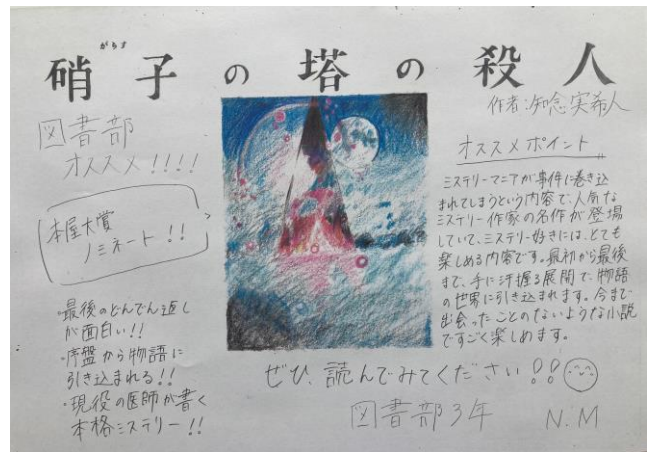 がらす
硝子の塔の殺人
作者:知念実希人
図書部
オススメ!!!!
本屋大賞
ノミネート!!
・最後のどんでん返し
が面白い!!
・序盤から物語に
引き込まれる!!
・現役の医師が書く
本格ミステリー!!
オススメポイント
ミステリーマニアが事件に巻き込
まれてしまうという内容で、人気な
ミステリー作家の名作が登場
していて、ミステリー好きには、とても
楽しめる内容です。最初から最後
まで、手に汗握る展開で、物語
の世界に引き込まれます。今まで
出会ったことのないような小説
ですごく楽しめます。
ぜひ、読んでみてください!!
図書部3年 N.M